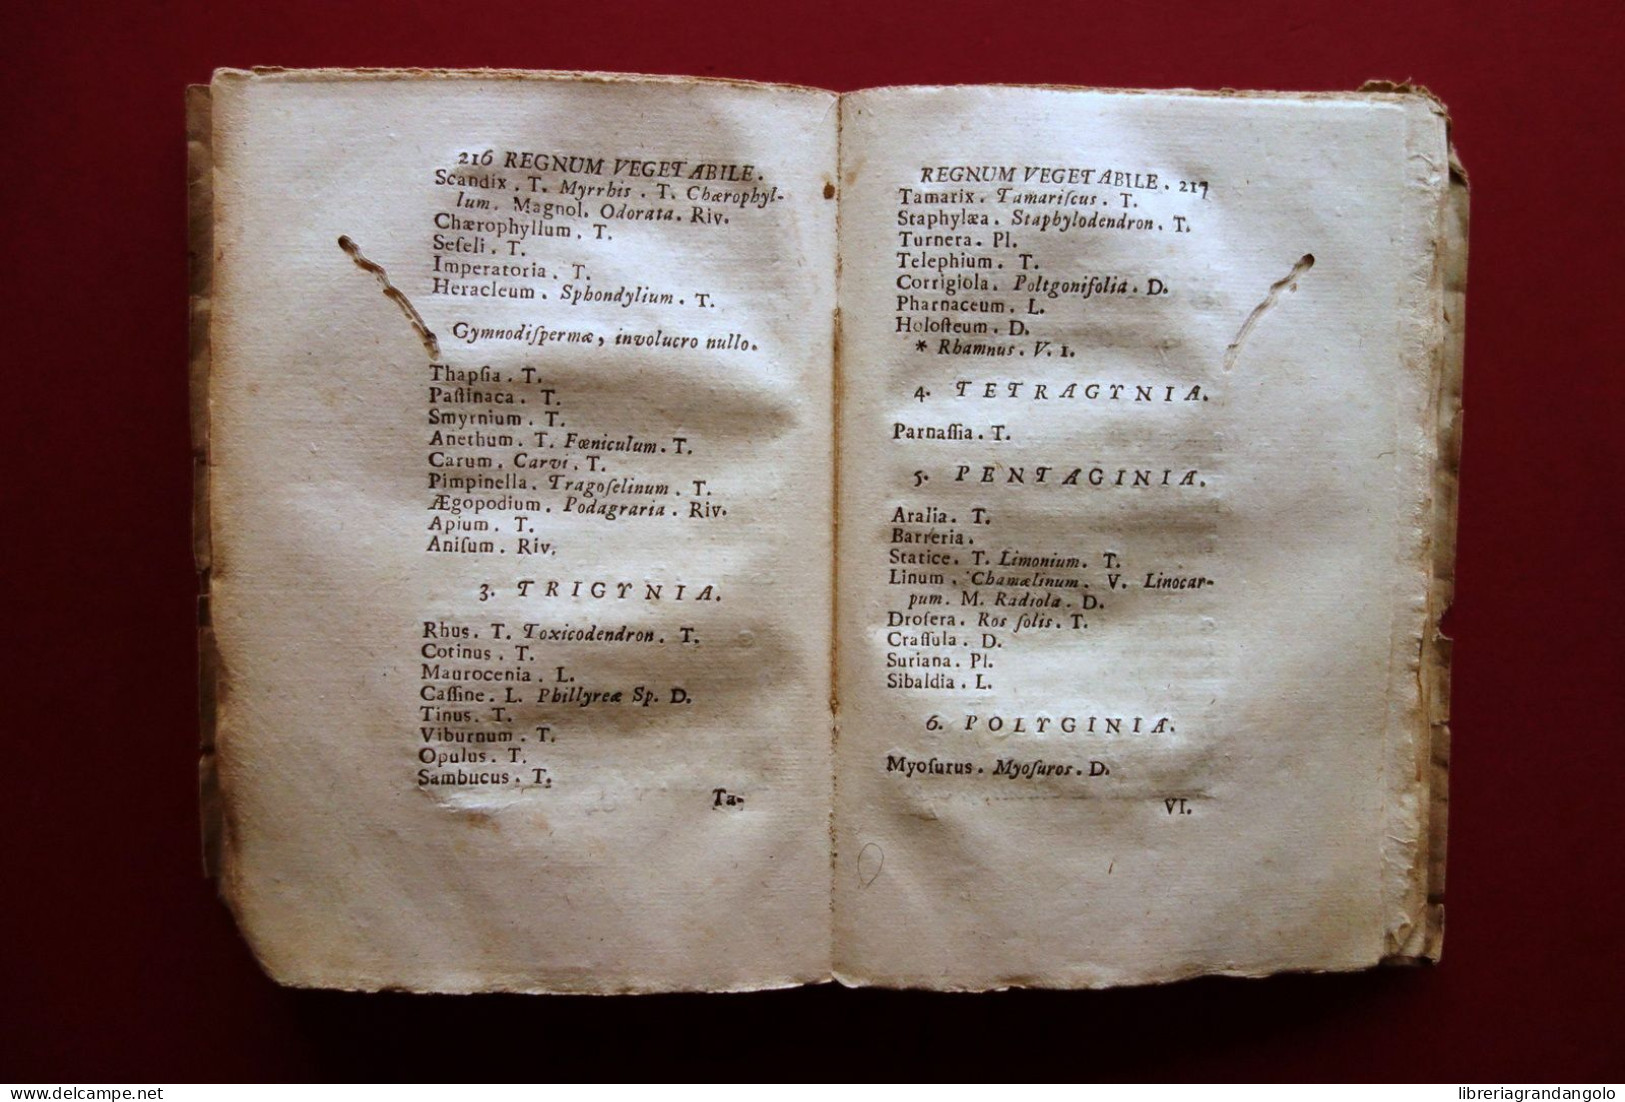 216 REGNUM VEGETABILE.
Scandix. T. Myrrhis. T. Chærophyl-
lum. Magnol. Odorata. Riv.
Chærophyllum. T.
Seſeli. T.
Imperatoria. T.
Heracleum. Sphondylium. T.
Gymnodiſpermæ, involucro nullo.
Thapſia. T.
Paſtinaca. T.
Smyrnium. T.
Anethum. T. Fœniculum. T.
Carum. Carvi. T.
Pimpinella. Tragoſelinum. T.
Ægopodium. Podagraria. Riv.
Apium. T.
Aniſum. Riv.
3. TRIGYNIA.
Rhus. T. Toxicodendron. T.
Cotinus. T.
Maurocenia. L.
Caſſine. L. Phillyreæ Sp. D.
Tinus. T.
Viburnum. T.
Opulus. T.
Sambucus. T.
Ta-
REGNUM VEGETABILE. 217
Tamarix. Tamariſcus. T.
Staphylæa. Staphylodendron. T.
Turnera. Pl.
Telephium. T.
Corrigiola. Poltgonifolia. D.
Pharnaceum. L.
Holoſteum. D.
* Rhamnus. V. 1.
4. TETRAGYNIA.
Parnaſſia. T.
5. PENTAGINIA.
Aralia. T.
Barreria.
Statice. T. Limonium. T.
Linum. Chamælinum. V. Linocar-
pum. M. Radiola. D.
Droſera. Ros ſolis. T.
Craſſula. D.
Suriana. Pl.
Sibaldia. L.
6. POLYGINIA.
Myoſurus. Myoſuros. D.
VI.
delcampe.net
libreriagrandangolo